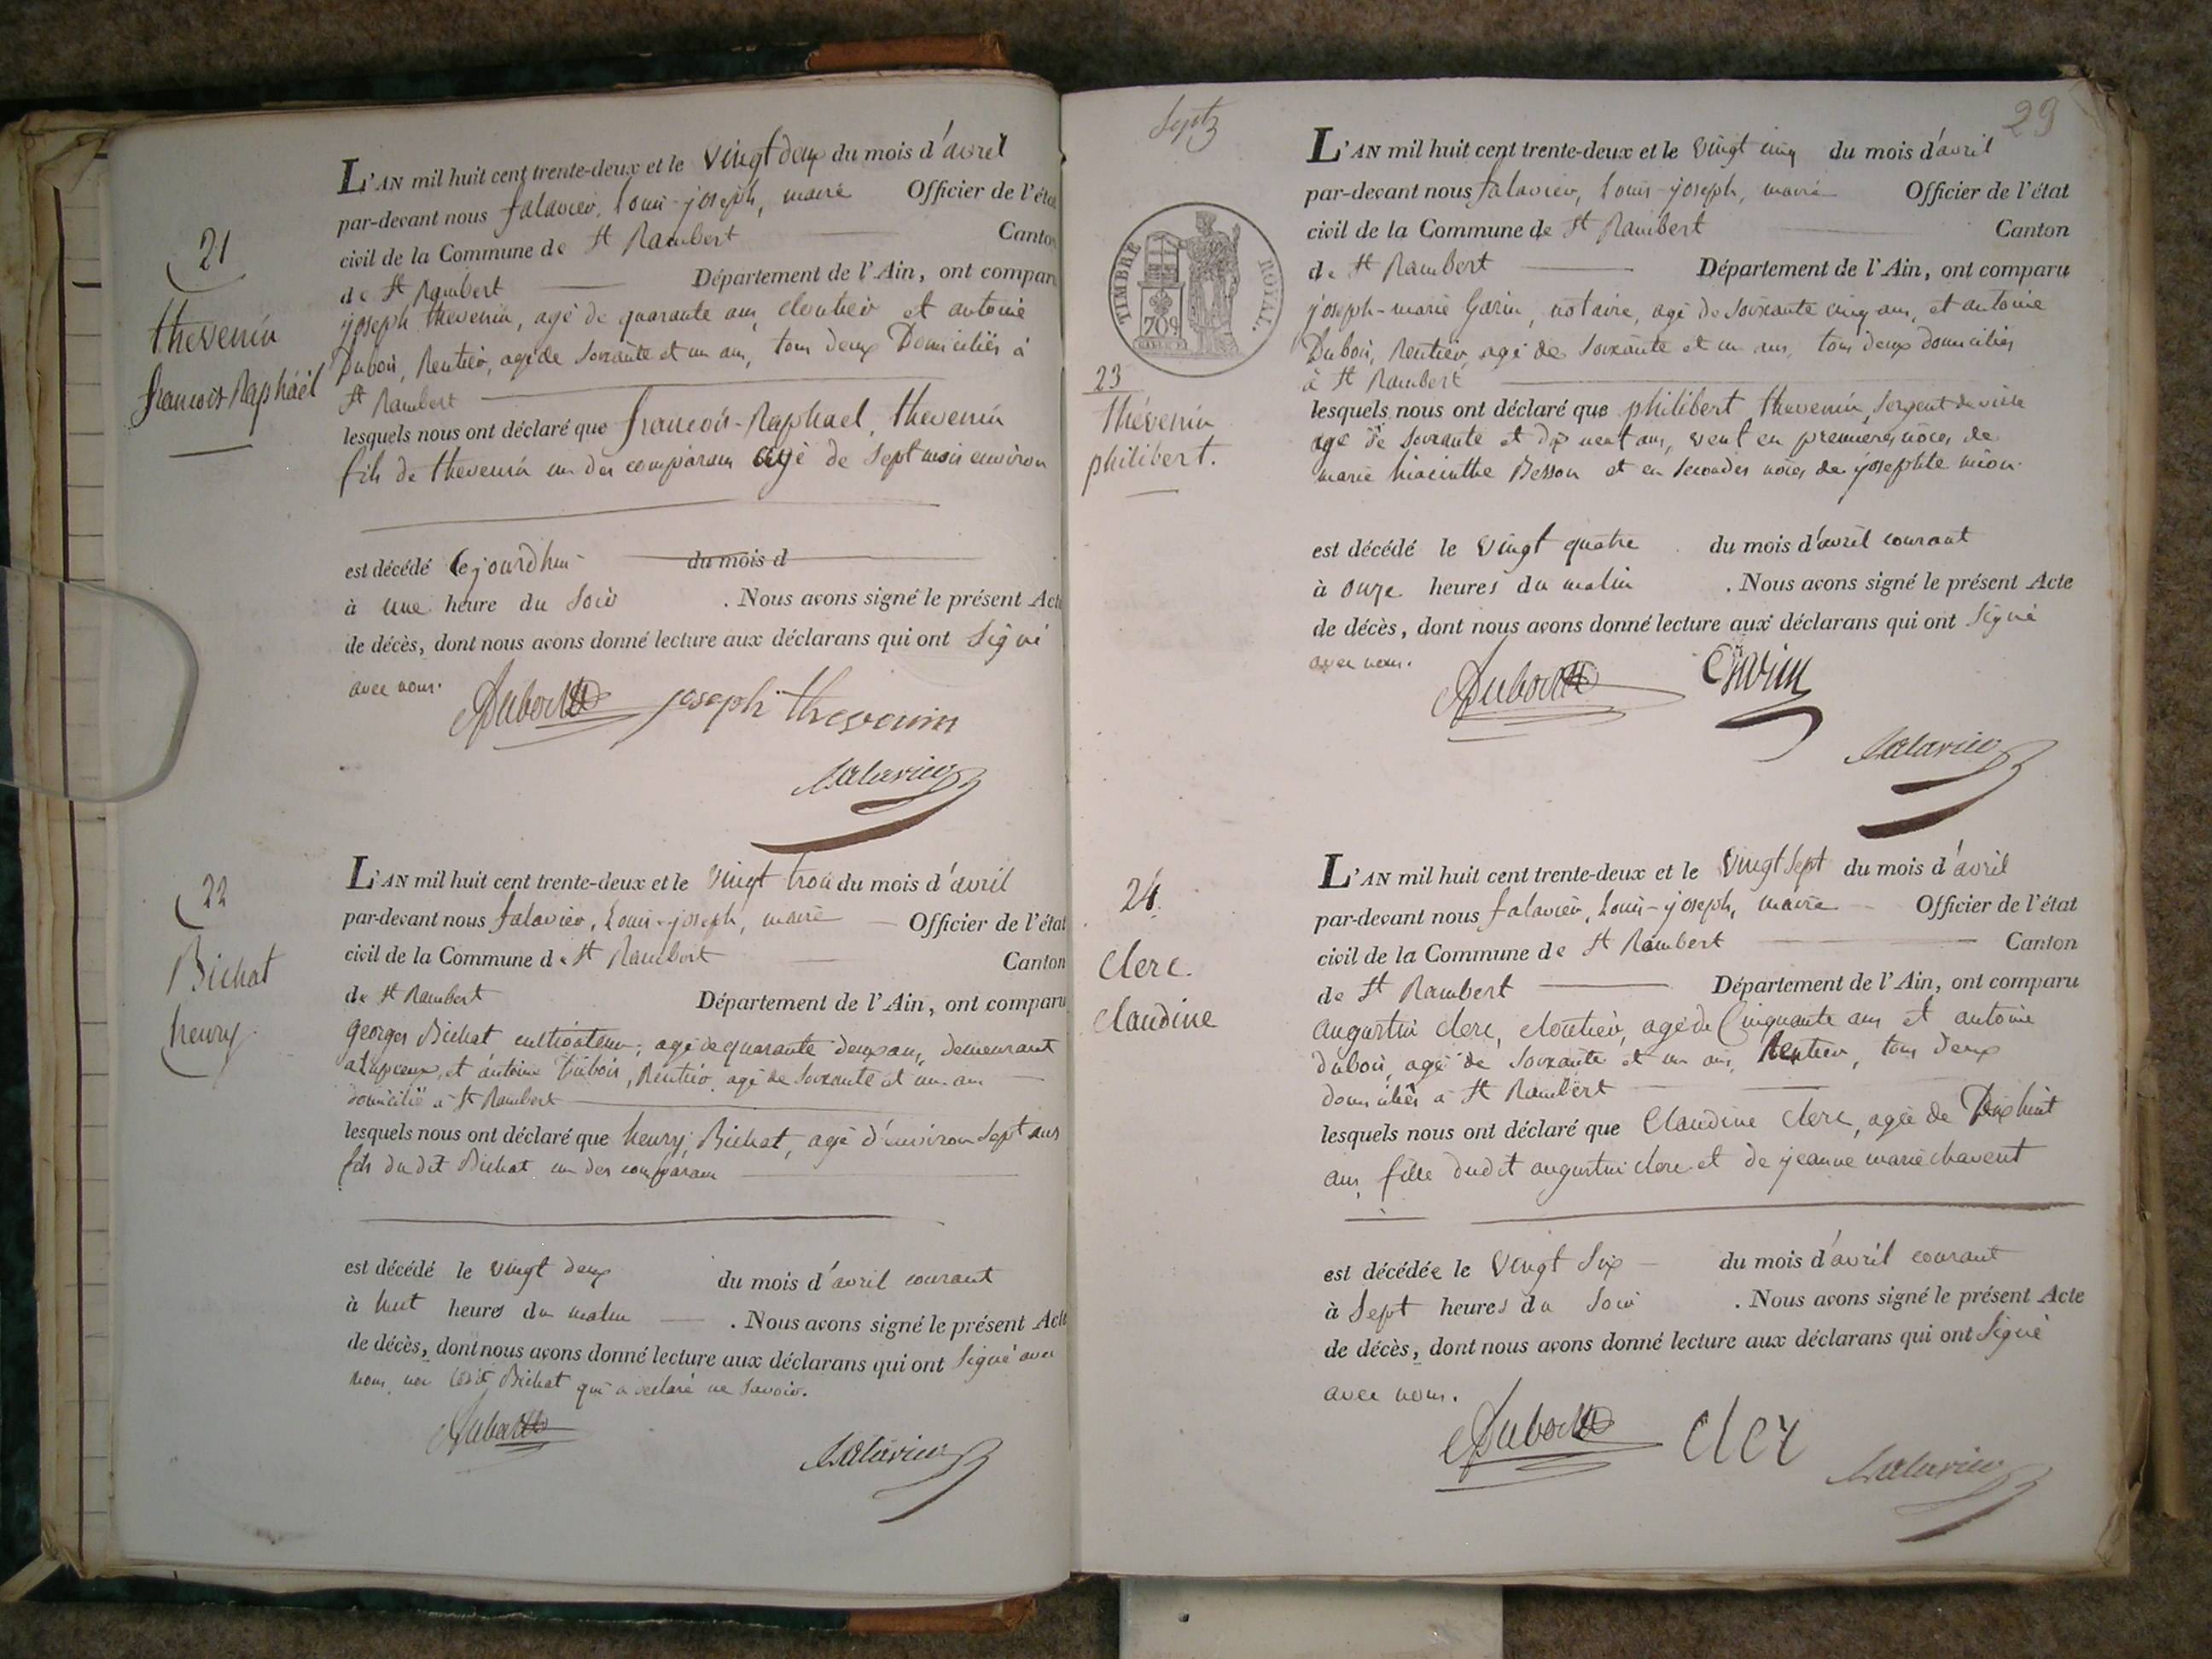 21
thevenin
francois Raphäel
L'AN mil huit cent trente-deux et le vingt deux du mois d'avril
par-devant nous falavier, louis-joseph, maire Officier de l'éta
civil de la Commune de St Rambert Canton
de St Rambert Département de l'Ain, ont compar
joseph thevenin, agé de quarante ans, cloutier et antoine
Dubois, Rentier, agé de soixante et un ans, tous deux Domiciliés à
St Rambert
lesquels nous ont déclaré que francois-Raphael, thevenin
fils de thevenin un des comparans agé de sept mois environ
est décédé cejourdhui du mois d
à une heure du soir . Nous avons signé le présent Acte
de décès, dont nous avons donné lecture aux déclarans qui ont signé
avec nous.
Dubois joseph thevenin
falavier
22
Bichat
henry
L'AN mil huit cent trente-deux et le vingt trois du mois d'avril
par-devant nous falavier, Louis-joseph, maire Officier de l'état
civil de la Commune de St Rambert Canton
de St Rambert Département de l'Ain, ont comparu
Georges Bichat cultivateur, agé de quarante deux ans, demeurant
et antoine Dubois, Rentier, agé de soixante et un ans
domicilié à St Rambert
lesquels nous ont déclaré que henry, Bichat, agé d'environ sept ans
fils du dit Bichat un des comparans
est décédé le vingt deux du mois d'avril courant
à huit heures du matin . Nous avons signé le présent Acte
de décès, dont nous avons donné lecture aux déclarans qui ont signé avec
nous, non ledit Bichat qui a declaré ne savoir.
Dubois
falavier
29
Sept
TIMBRE ROYAL.
23
thévenin
philibert.
L'AN mil huit cent trente-deux et le vingt cinq du mois d'avril
par-devant nous falavier, Louis-joseph, maire Officier de l'état
civil de la Commune de St Rambert Canton
de St Rambert Département de l'Ain, ont comparu
joseph-marie Garin, notaire, agé de soixante cinq ans, et antoine
Dubois, Rentier, agé de soixante et un ans, tous deux domiciliés
à St Rambert
lesquels nous ont déclaré que philibert thevenin, sergent de ville
agé de soixante et dix neuf ans, veuf en premières nôces de
marie hiacinthe Besson et en secondes nôces de josephte
est décédé le vingt quatre du mois d'avril courant
à onze heures du matin . Nous avons signé le présent Acte
de décès, dont nous avons donné lecture aux déclarans qui ont signé
avec nous.
Dubois Garin
falavier
24.
Clerc.
Claudine
L'AN mil huit cent trente-deux et le vingt sept du mois d'avril
par-devant nous falavier, Louis-joseph, maire Officier de l'état
civil de la Commune de St Rambert Canton
de St Rambert Département de l'Ain, ont comparu
augustin clerc, cloutier, agé de Cinquante ans et antoine
dubois, agé de soixante et un ans, Rentier, tous deux
domiciliés à St Rambert
lesquels nous ont déclaré que Claudine Clerc, agée de Dix huit
ans, fille dudit augustin clerc et de jeanne marie chavent
est décédée le vingt six du mois d'avril courant
à sept heures du soir . Nous avons signé le présent Acte
de décès, dont nous avons donné lecture aux déclarans qui ont signé
avec nous.
Dubois Cler falavier